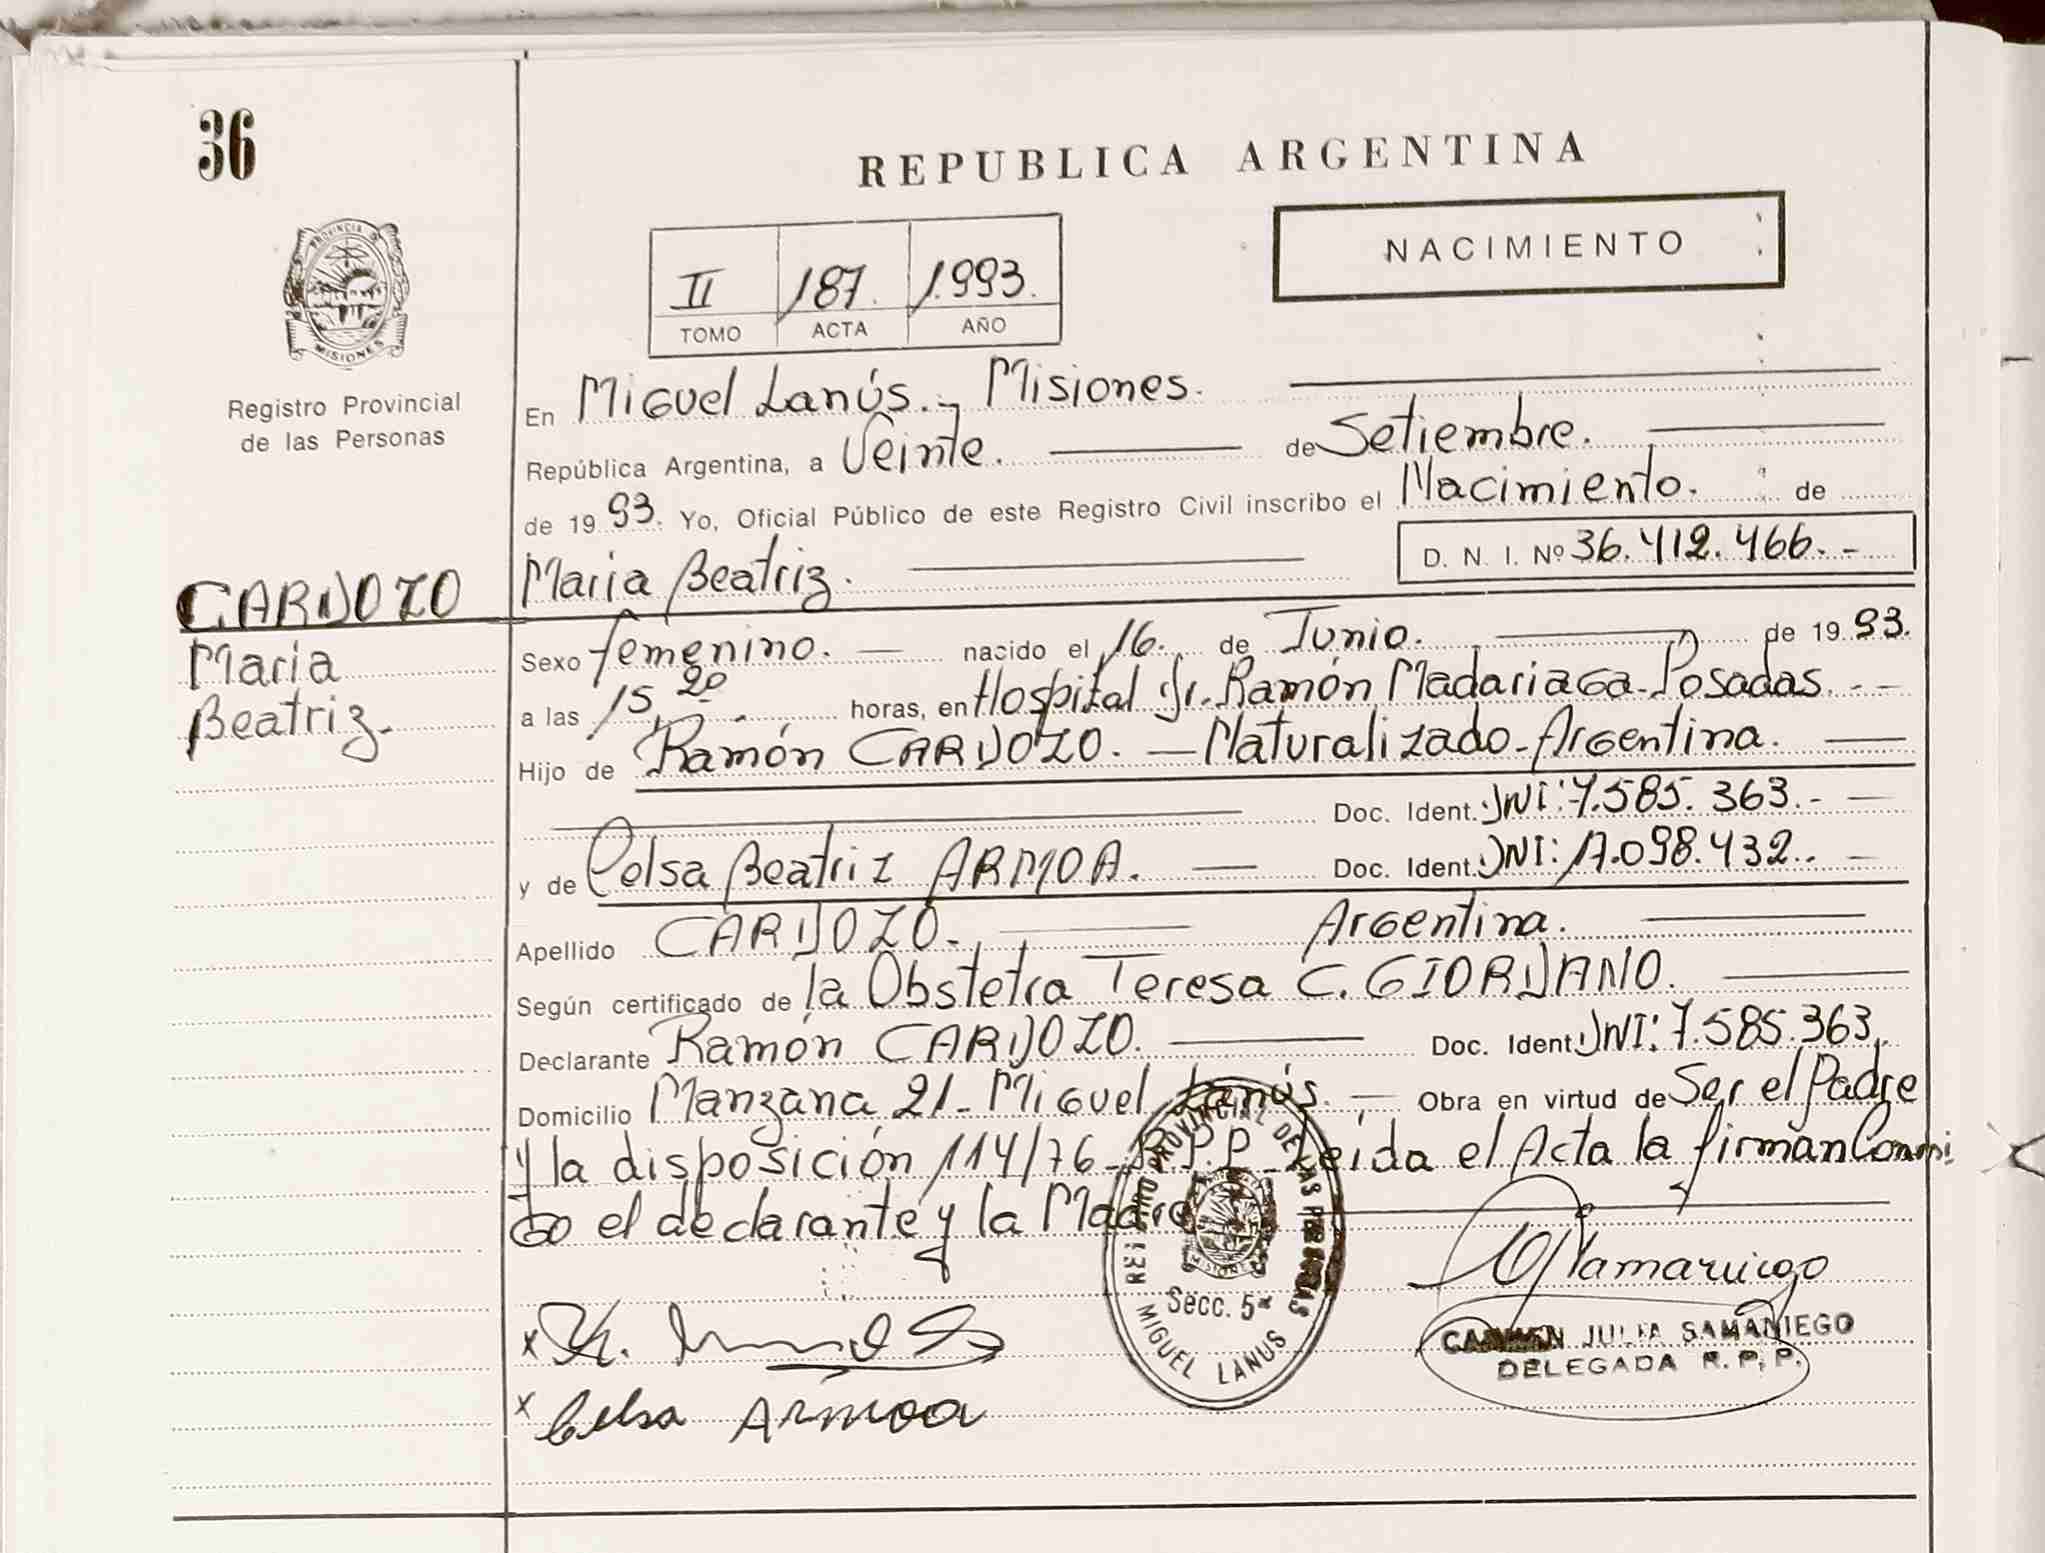 36
REPUBLICA ARGENTINA
NACIMIENTO
PROVINCIA DE
MISIONES
II 187. 1.993.
TOMO ACTA AÑO
Registro Provincial
de las Personas
En Miguel Lanús.- Misiones.
República Argentina, a Veinte. de Setiembre.
de 1993. Yo, Oficial Público de este Registro Civil inscribo el Nacimiento. de
Maria Beatriz. D. N. I. Nº 36.412.466.-
CARDOZO
Maria
Beatriz.-
Sexo femenino. nacido el 16. de Junio. de 1993.
a las 15,20 horas, en Hospital Dr. Ramón Madariaga-Posadas.--
Hijo de Ramón CARDOZO. — Naturalizado-Argentina.
Doc. Ident. DNI: 7.585.363.-
y de Celsa Beatriz ARMOA. Doc. Ident. DNI: 17.098.432.-
Apellido CARDOZO.- Argentina.
Según certificado de la Obstetra Teresa C. GIORDANO.
Declarante Ramón CARDOZO. Doc. Ident. DNI: 7.585.363.
Domicilio Manzana 21- Miguel Lanús. Obra en virtud de Ser el Padre
y la disposición 114/76-R.P.P. Leida el Acta la firman Conmi
go el declarante y la Madre
REGISTRO PROVINCIAL DE LAS PERSONAS
MISIONES
Secc. 5ª
MIGUEL LANUS
CARMEN JULIA SAMANIEGO
DELEGADA R. P. P.
x
x Celsa Armoa